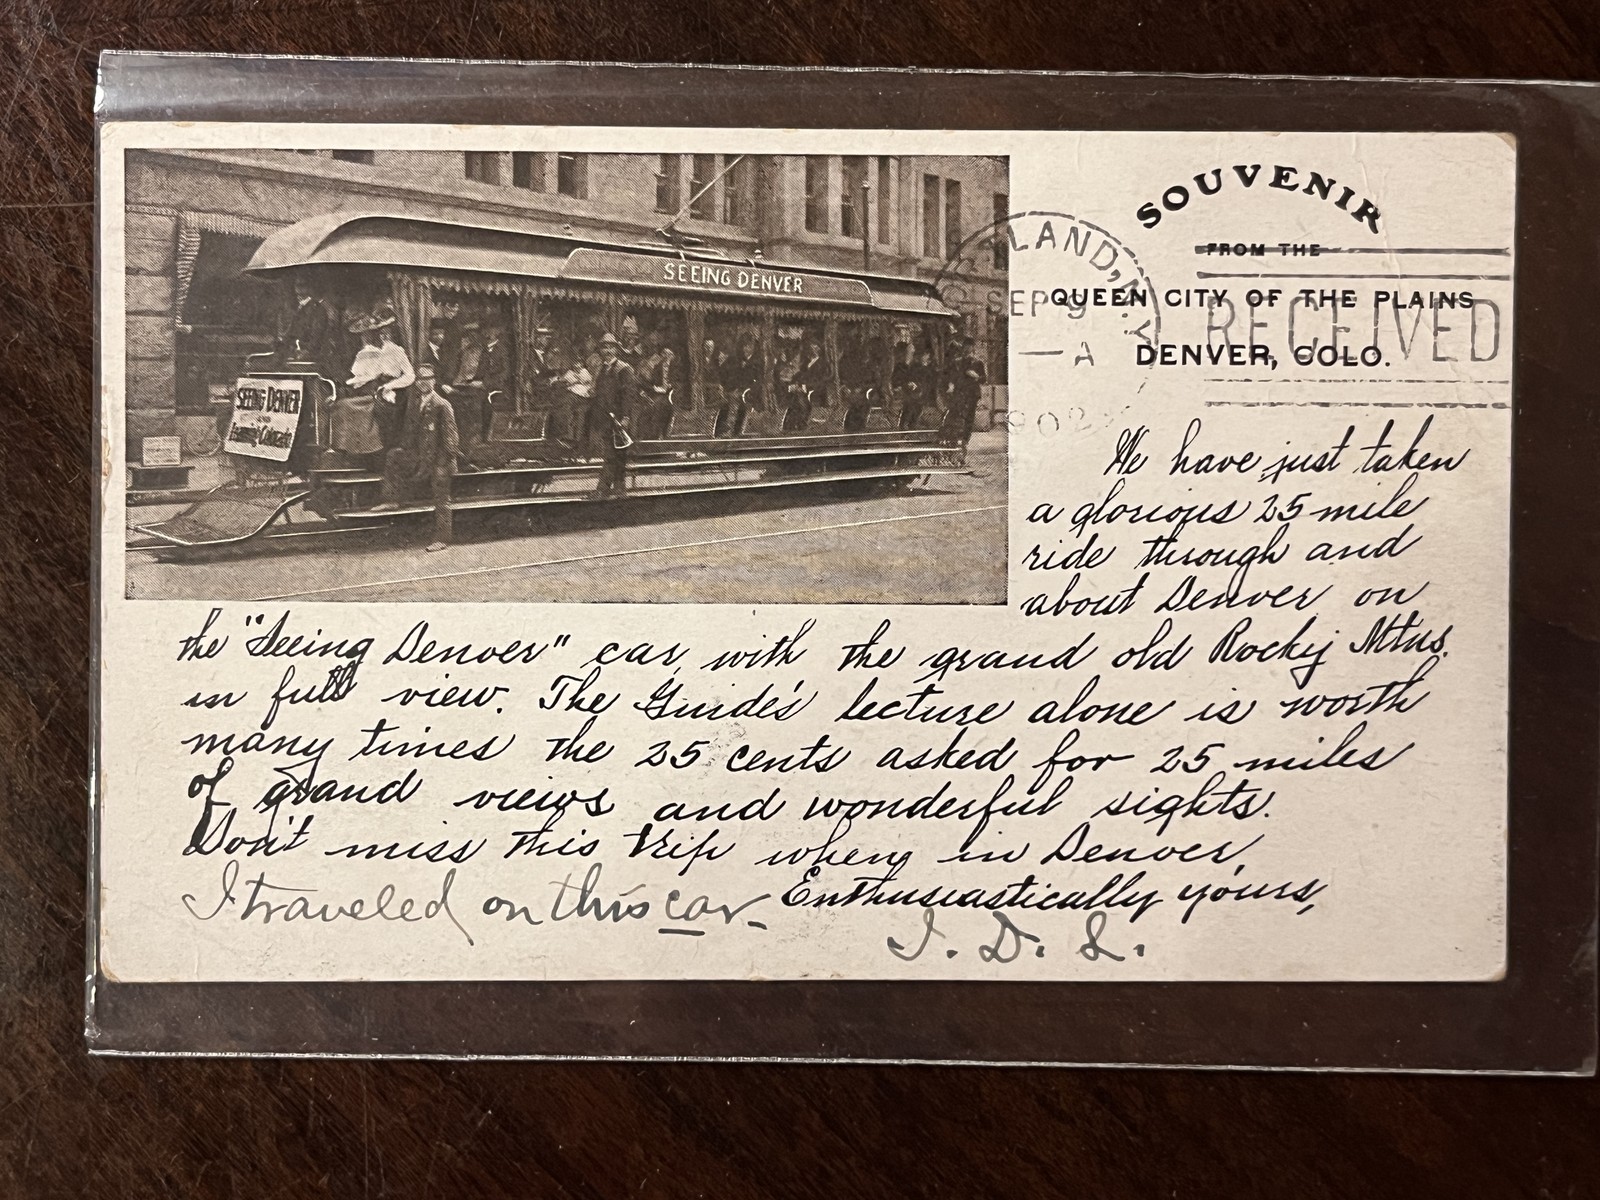 SOUVENIR
FROM THE
QUEEN CITY OF THE PLAINS
DENVER, COLO.
LAND, N.Y.
SEP 9
— A
1902
RECEIVED
SEEING DENVER
SEEING DENVER
We have just taken
a glorious 25 mile
ride through and
about Denver on
the "Seeing Denver" car, with the grand old Rocky Mtns.
in full view. The Guide's lecture alone is worth
many times the 25 cents asked for 25 miles
of grand views and wonderful sights.
Don't miss this trip when in Denver.
Enthusiastically yours,
I traveled on this car—
I. D. L.